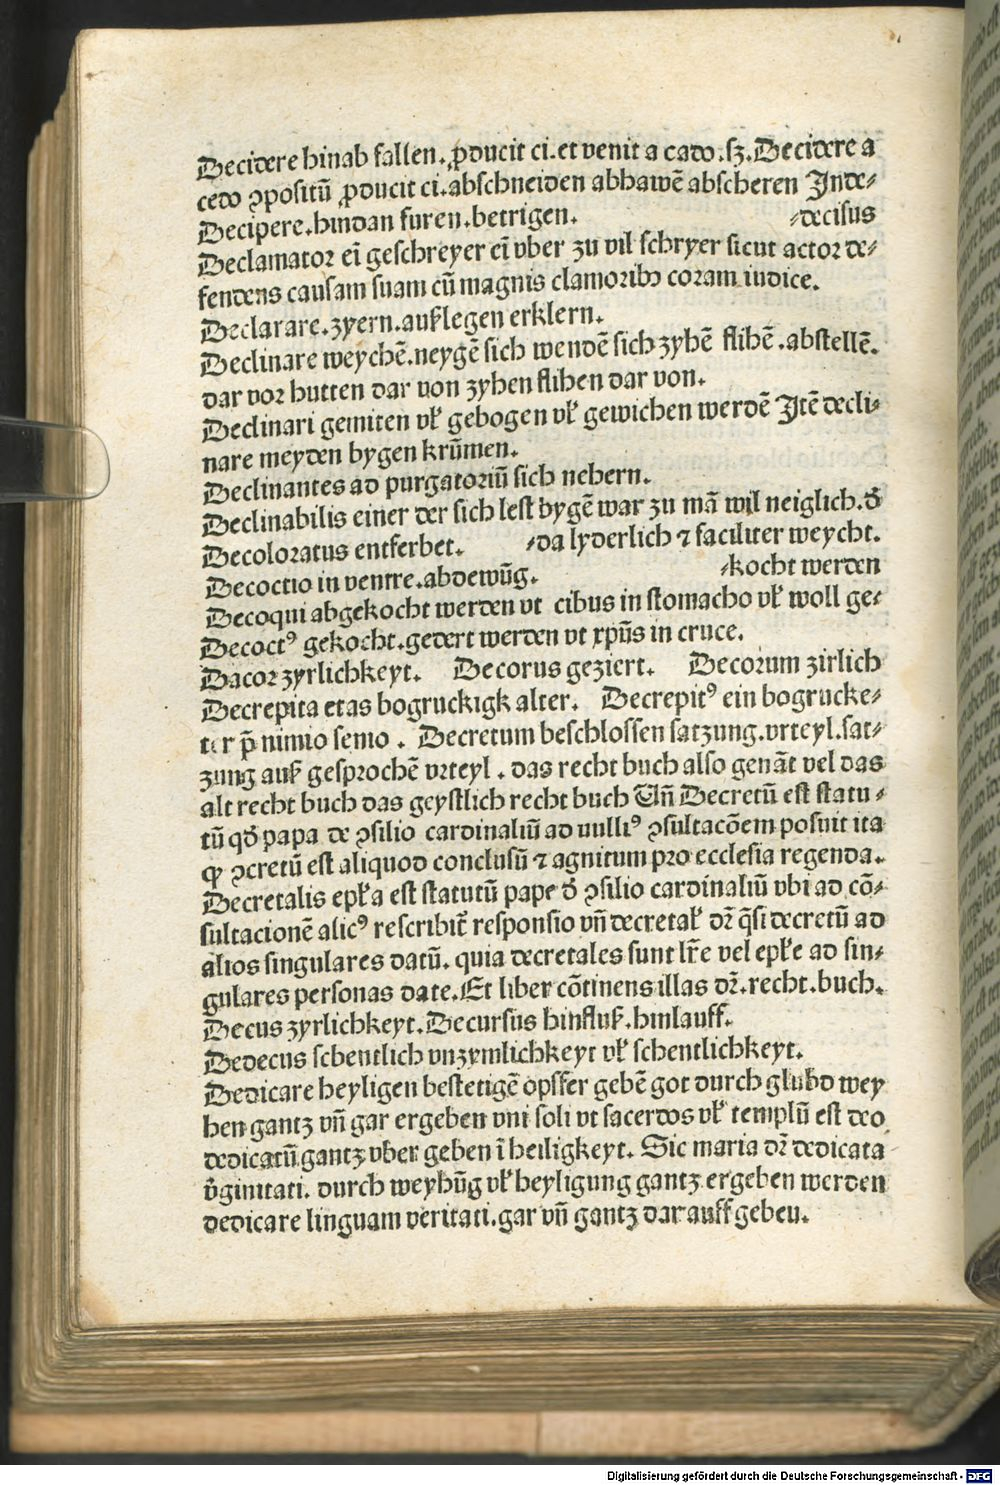 Decidere hinab fallen. ꝓducit ci. et venit a cado. sꝫ. Decidere a
cedo ꝯpositū ꝓducit ci. abschneiden abhawē abscheren Inde⸗
Decipere. hindan furen. betrigen. ⸗decisus
Declamator eī geschreyer eī vber zu vil schryer sicut actor de⸗
fendens causam suam cū magnis clamoribꝫ coram iudice.
Declarare. zyern. auß legen erklern.
Declinare weychē. neygē sich wendē sich zyhē flihē. abstellē.
dar vor hutten dar von zyhen flihen dar von.
Declinari gemiten vł gebogen vł gewichen werdē Itē decli⸗
nare meyden bygen krūmen.
Declinantes ad purgatoriū sich nehern.
Declinabilis einer der sich lest bygē war zu mā wil neiglich. đ
Decoloratus entferbet. ⸗da lyderlich ⁊ faciliter weycht.
Decoctio in ventre. abdewūg. ⸗kocht werden
Decoqui abgekocht werden vt cibus in stomacho vł woll ge⸗
Decoctꝰ gekocht. gedert werden vt xp̄us in cruce.
Dacor zyrlichkeyt. Decorus geziert. Decorum zirlich
Decrepita etas bogruckigk alter. Decrepitꝰ ein bogrucke⸗
ter p̄ nimio senio. Decretum beschlossen satzung. vrteyl. sat⸗
zung auß gesprochē vrteyl. das recht buch also genāt vel das
alt recht buch das geystlich recht buch Uñ Decretū est statu⸗
tū qđ papa de ꝯsilio cardinaliū ad nulliꝰ ꝯsultacōem posuit ita
ꝙ ꝯcretū est aliquod conclusū ⁊ agnitum pro ecclesia regenda.
Decretalis epła est statutū pape đ ꝯsilio cardinaliū vbi ad cō⸗
sultacionē alicꝰ rescribit̄ responsio vñ decretał dr̄ q̄si decretū ad
alios singulares datū. quia decretales sunt lr̄e vel epłe ad sin⸗
gulares personas date. Et liber cōtinens illas dr̄. recht. buch.
Decus zyrlichkeyt. Decursus hinfluß. hinlauff.
Dedecus schentlich vnzymlichkeyt vł schentlichkeyt.
Dedicare heyligen bestetigē opffer gebē got durch glubd wey
hen gantz vñ gar ergeben vni soli vt sacerdos vł templū est deo
dedicatū gantz vber geben ī heiligkeyt. Sic maria dr̄ dedicata
v̄ginitati. durch weyhūg vł heyligung gantz ergeben werden
dedicare linguam veritati. gar vñ gantz dar auff geben.
Digitalisierung gefördert durch die Deutsche Forschungsgemeinschaft - DFG